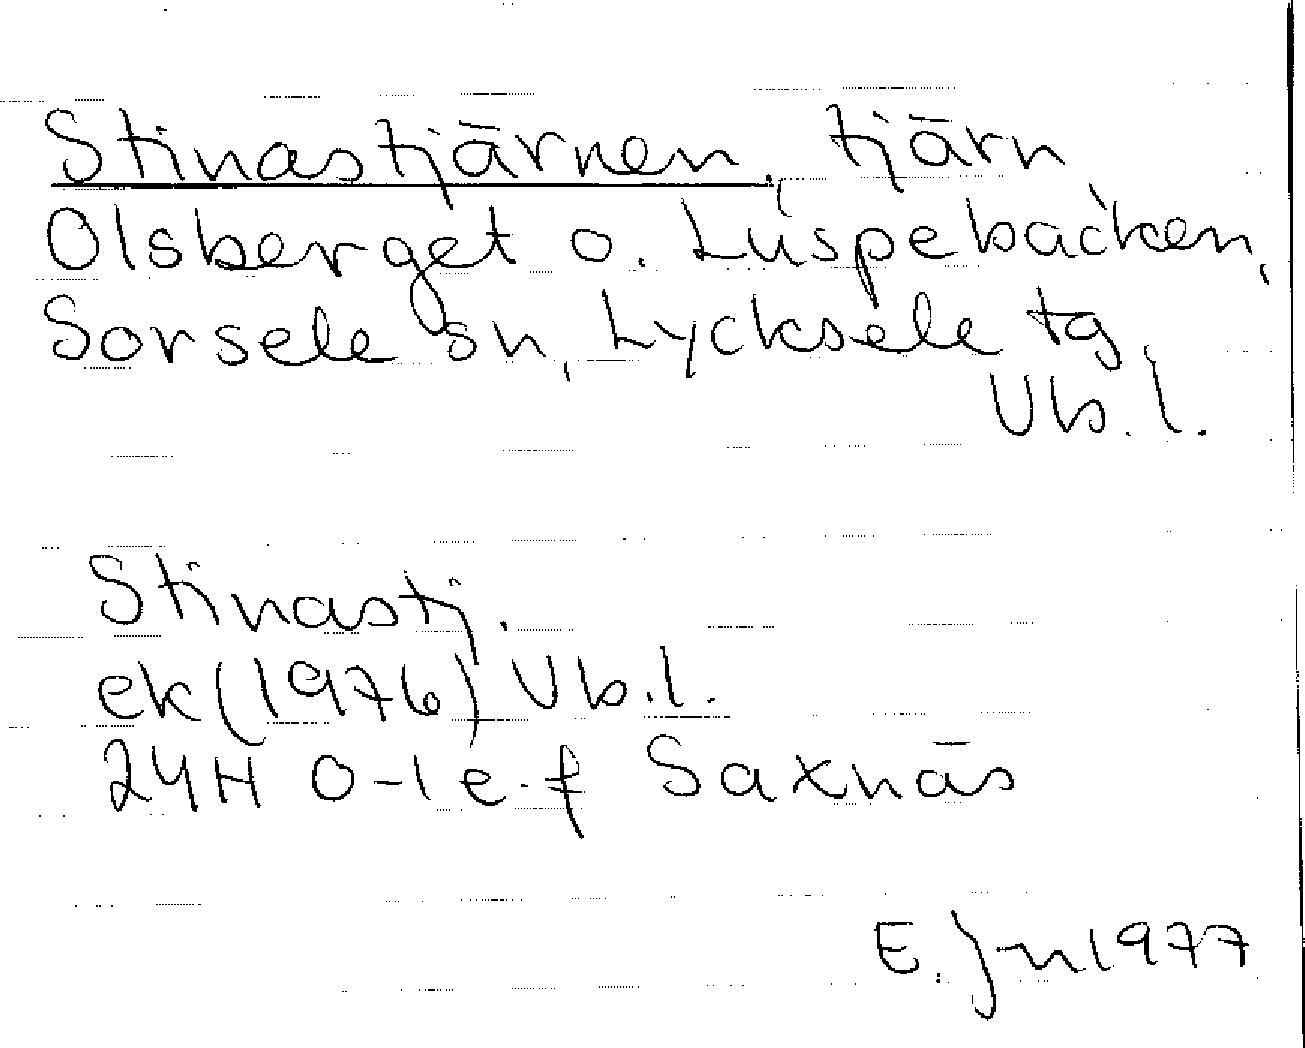 Stinastjärnen, tjärn
Olsberget o. Luspebäcken,
Sorsele sn, Lycksele tg,
Vb.l.
Stinastj.
ek (1976) Vb.l.
24H 0-1 e-f Saxnäs
E. Jn 1977